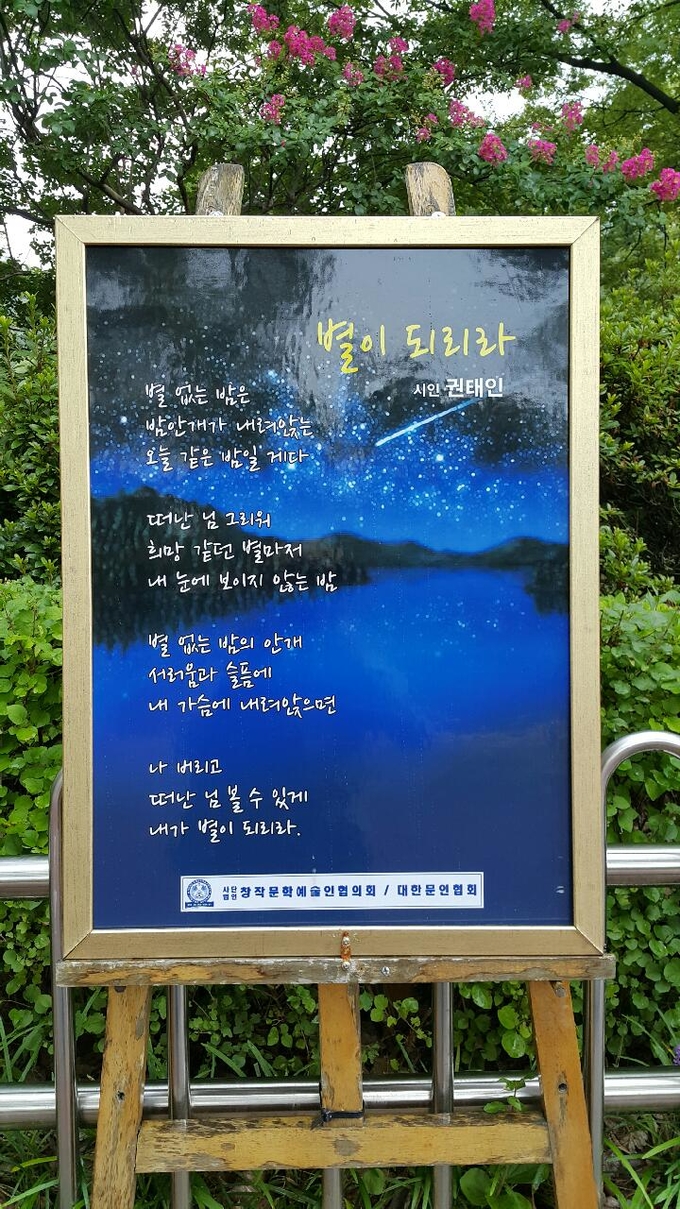 별이 되리라
시인 권태인
별 없는 밤은
밤안개가 내려앉는
오늘 같은 밤일 게다
떠난 님 그리워
희망 같던 별마저
내 눈에 보이지 않는 밤
별 없는 밤의 안개
서러움과 슬픔에
내 가슴에 내려앉으면
나 버리고
떠난 님 볼 수 있게
내가 별이 되리라.
사단법인 창작문학예술인협의회 / 대한문인협회